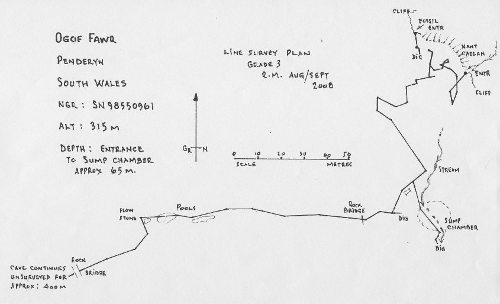 OGOF FAWR
PENDERYN
SOUTH WALES
NGR : SN98550961
ALT : 315 M
DEPTH : ENTRANCE
TO SUMP CHAMBER
APPROX 65 M.
LINE SURVEY PLAN
GRADE 3
2.M. AUG/SEPT
2008
GR N
0 10 20 30 40 50
SCALE METRES
CLIFF
FOSSIL
ENTR
DIG
NANT
CADLAN
ENTR
CLIFF
STREAM
SUMP
CHAMBER
DIG
DIG
ROCK
BRIDGE
POOLS
FLOW
STONE
ROCK
BRIDGE
CAVE CONTINUES
UNSURVEYED FOR
APPROX : 400 M